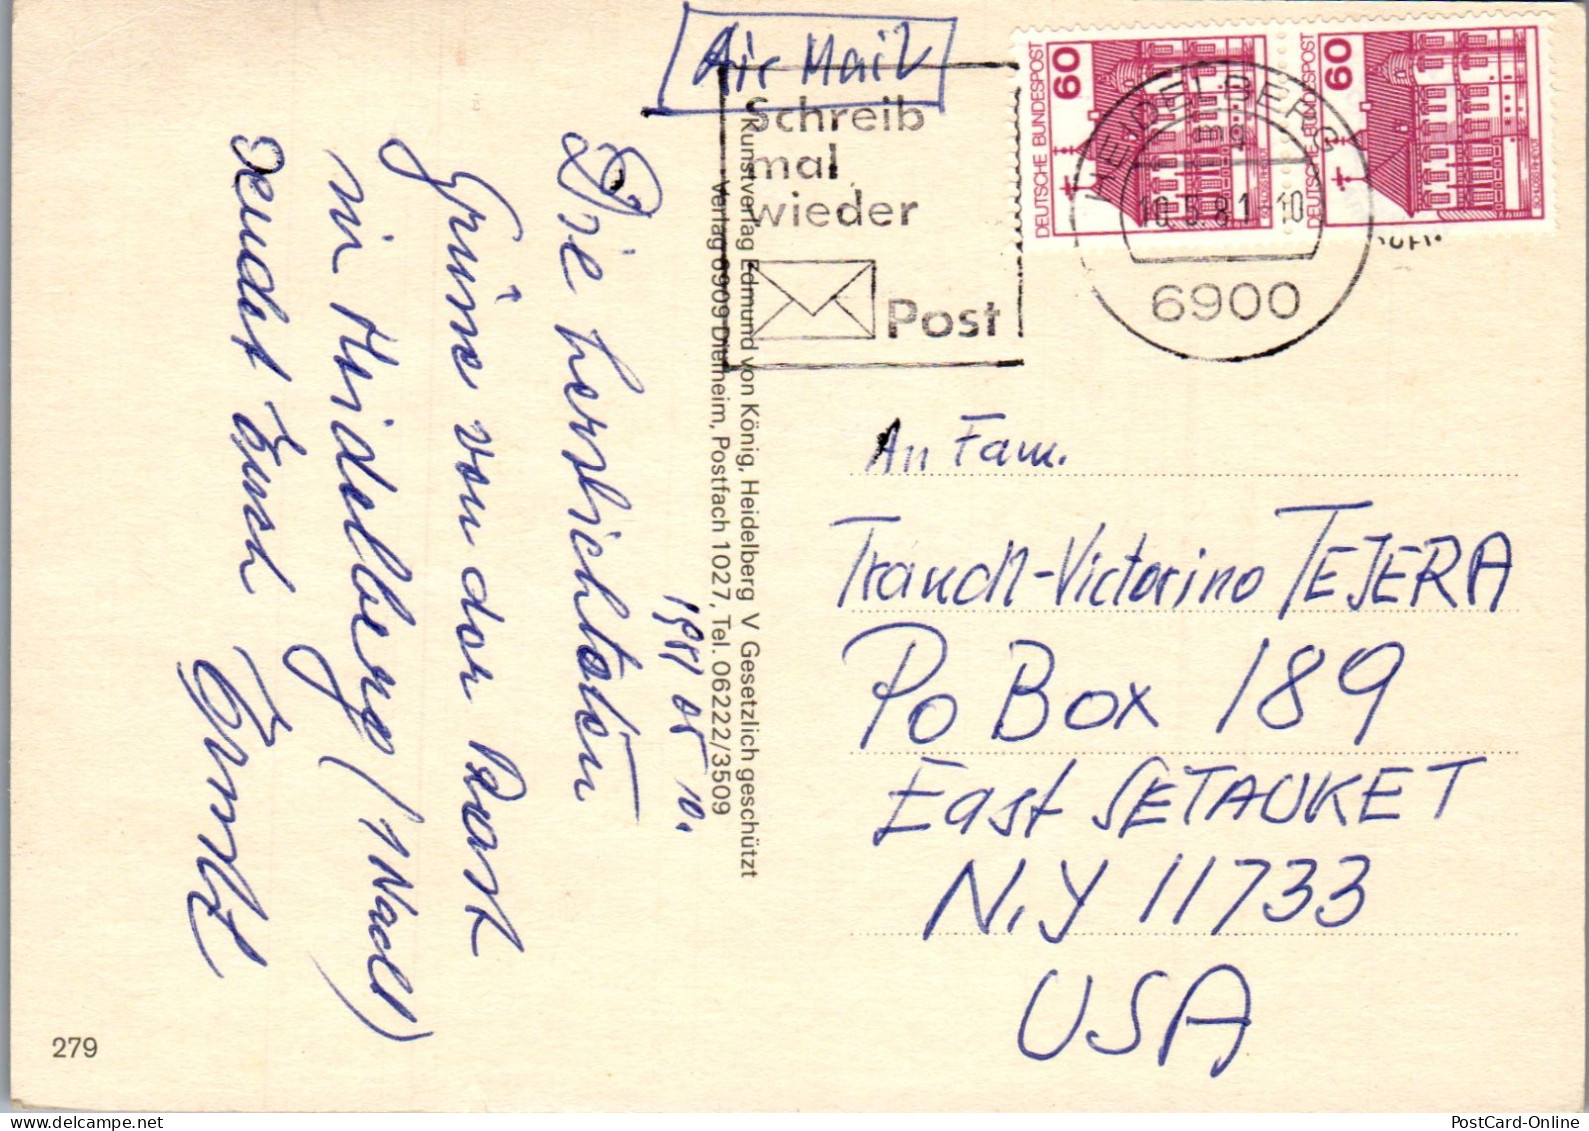 Air Mail
Schreib
mal
wieder
Post
DEUTSCHE BUNDESPOST
60
DEUTSCHE BUNDESPOST
60
HEIDELBERG
mg
10.5.81-10
6900
1981 05 10.
Die herzlichsten
Grüsse von der Post
in Heidelberg (1 Nacht)
sendet Euch
Ernst
Kunstverlag Edmund von König, Heidelberg V Gesetzlich geschützt
Verlag 6909 Dielheim, Postfach 1027, Tel. 06222/3509
An Fam.
Trauch-Victorino TEJERA
PO Box 189
East SETAUKET
N.Y 11733
USA
279
PostCard-Online